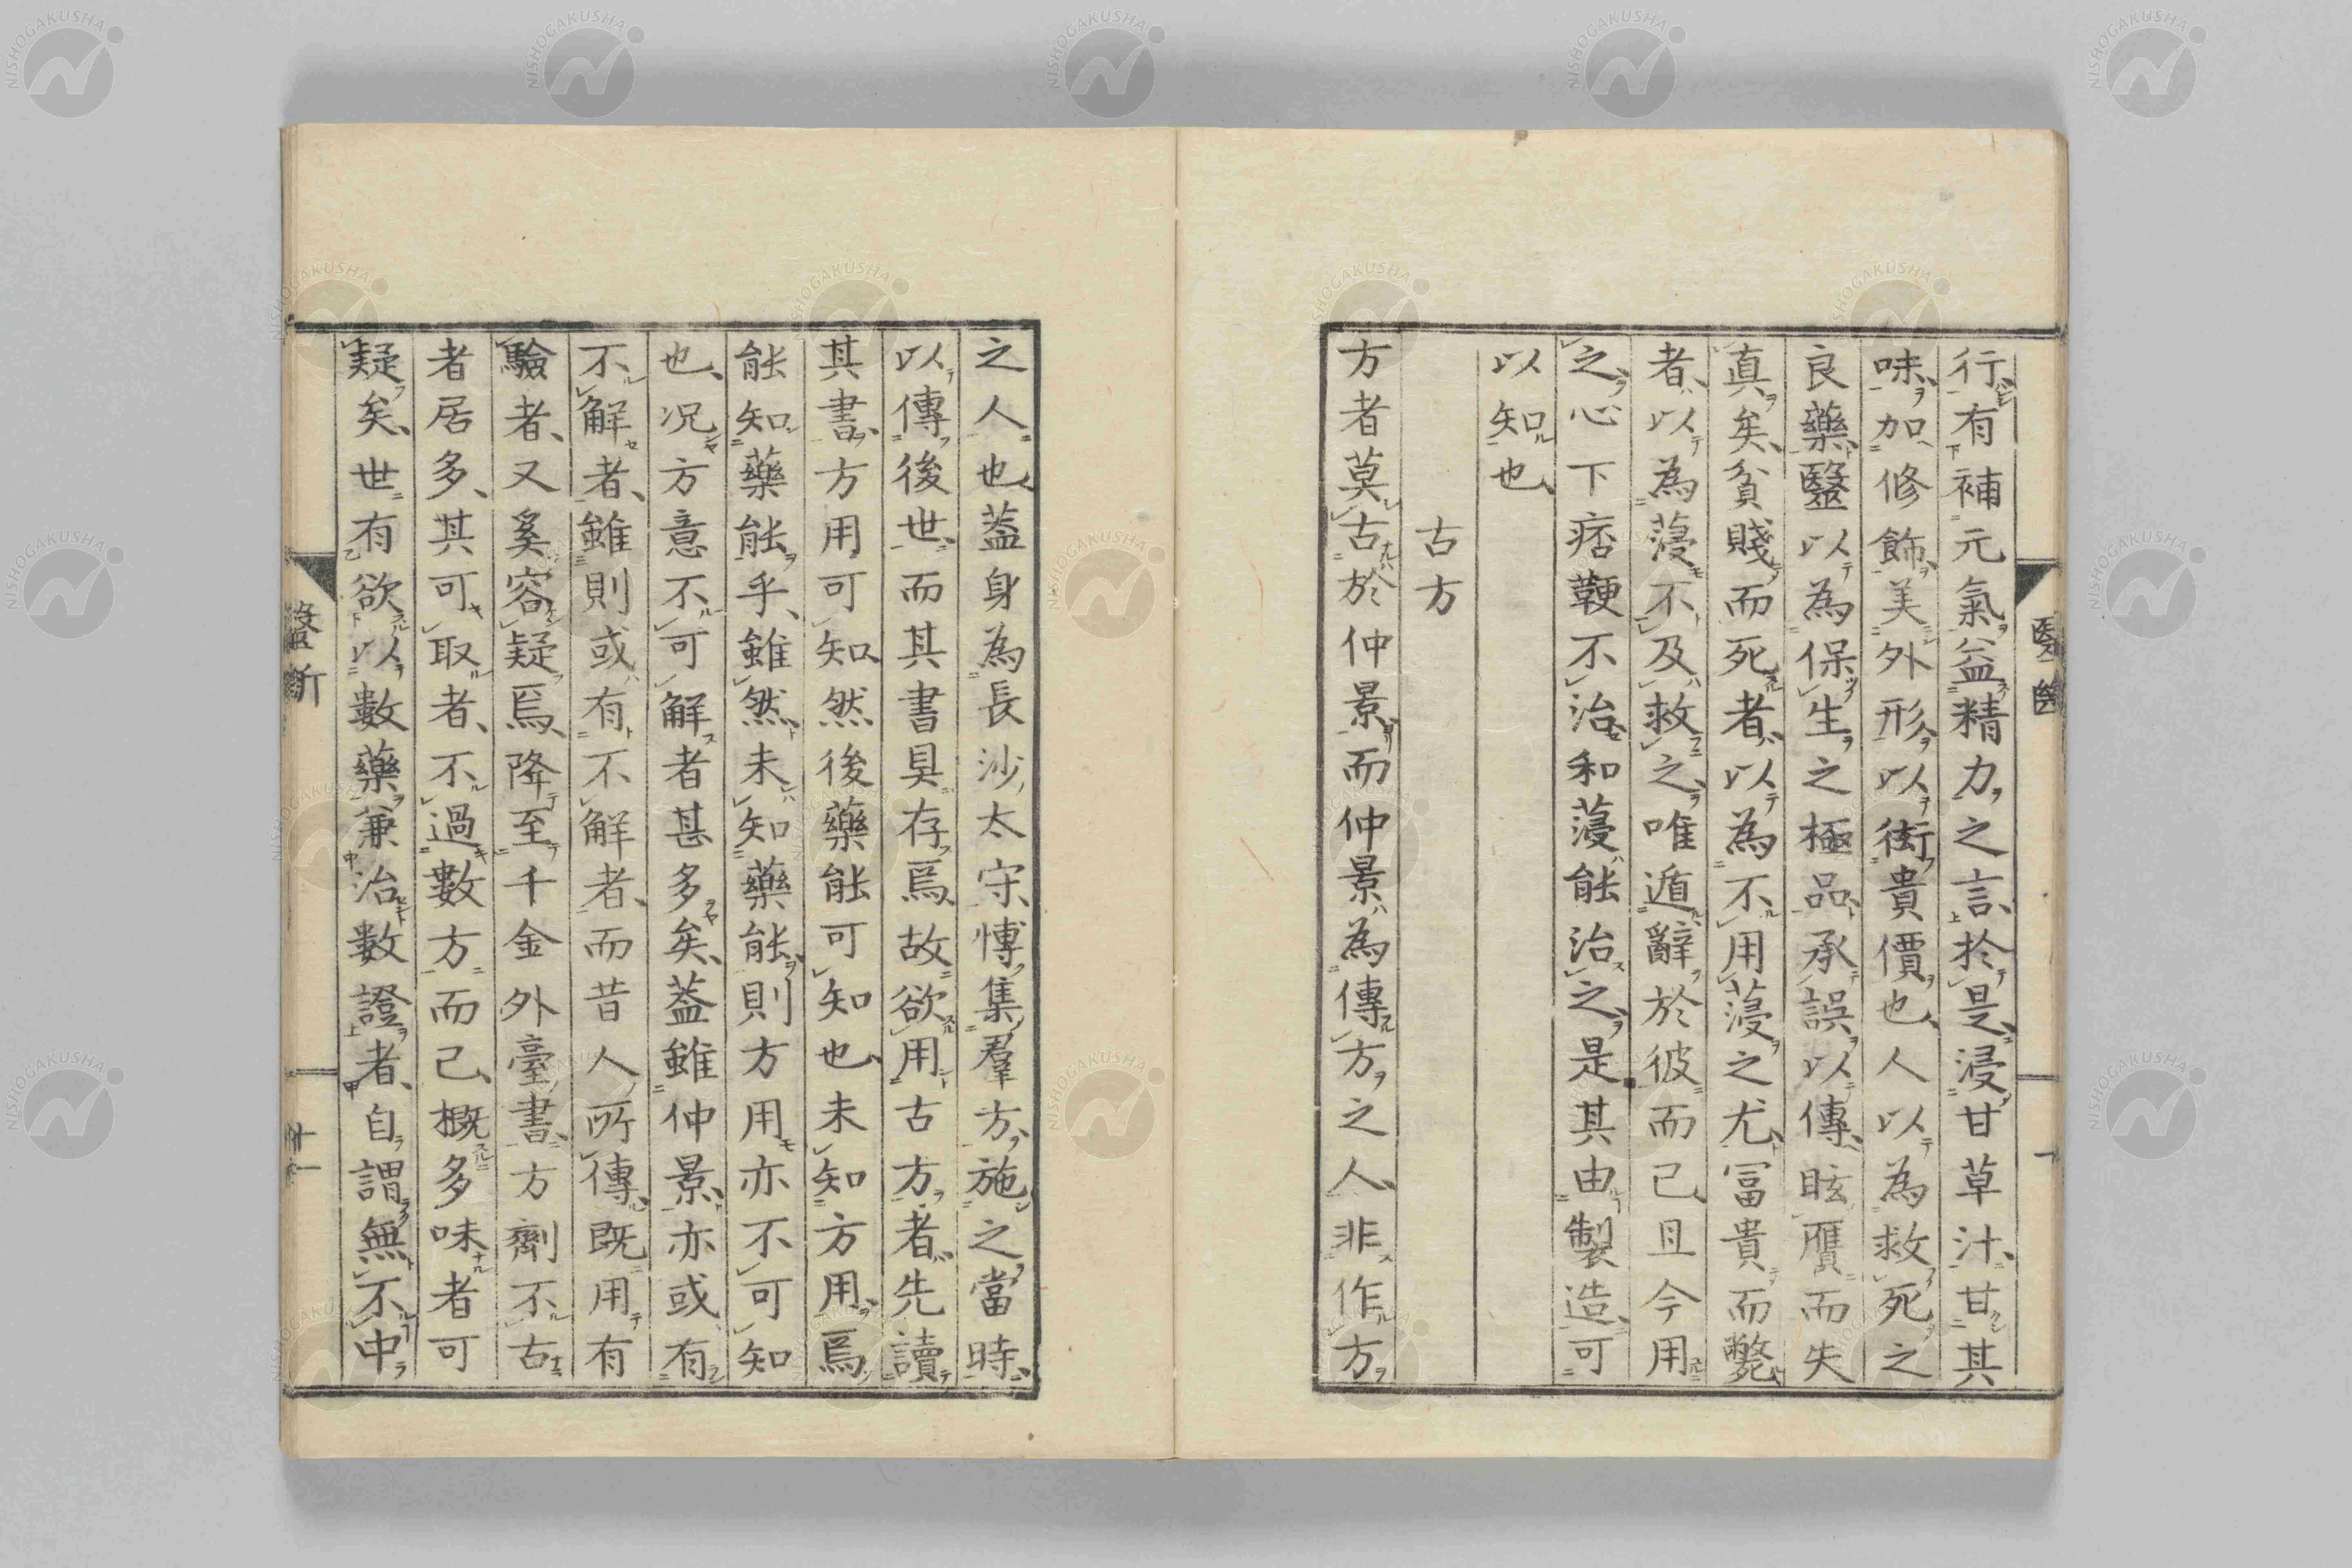 行有補元氣益精力之言於是浸甘草汁甘其
味加修飾美外形以衒貴價也人以為救死之
良藥醫以為保生之極品承誤以傳眩贋而失
真矣貧賤而死者以為不用蓡之尤冨貴而斃
者以為蓡不及救之唯遁辭於彼而已且今用
之心下痞鞕不治和蓡能治之是其由製造可
以知也
古方
方者莫古於仲景而仲景為傳方之人非作方
之人也蓋身為長沙太守博集羣方施之當時
以傳後世而其書具存焉故欲用古方者先讀
其書方用可知然後藥能可知也未知方用焉
能知藥能乎雖然未知藥能則方用亦不可知
也况方意不可解者甚多矣蓋雖仲景亦或有
不解者雖則或有不解者而昔人所傳既用有
驗者又奚容疑焉降至千金外臺書方劑不古
者居多其可取者不過數方而已概多味者可
疑矣世有欲以數藥兼治數證者自謂無不中
醫斷
十一
NISHOGAKUSHA